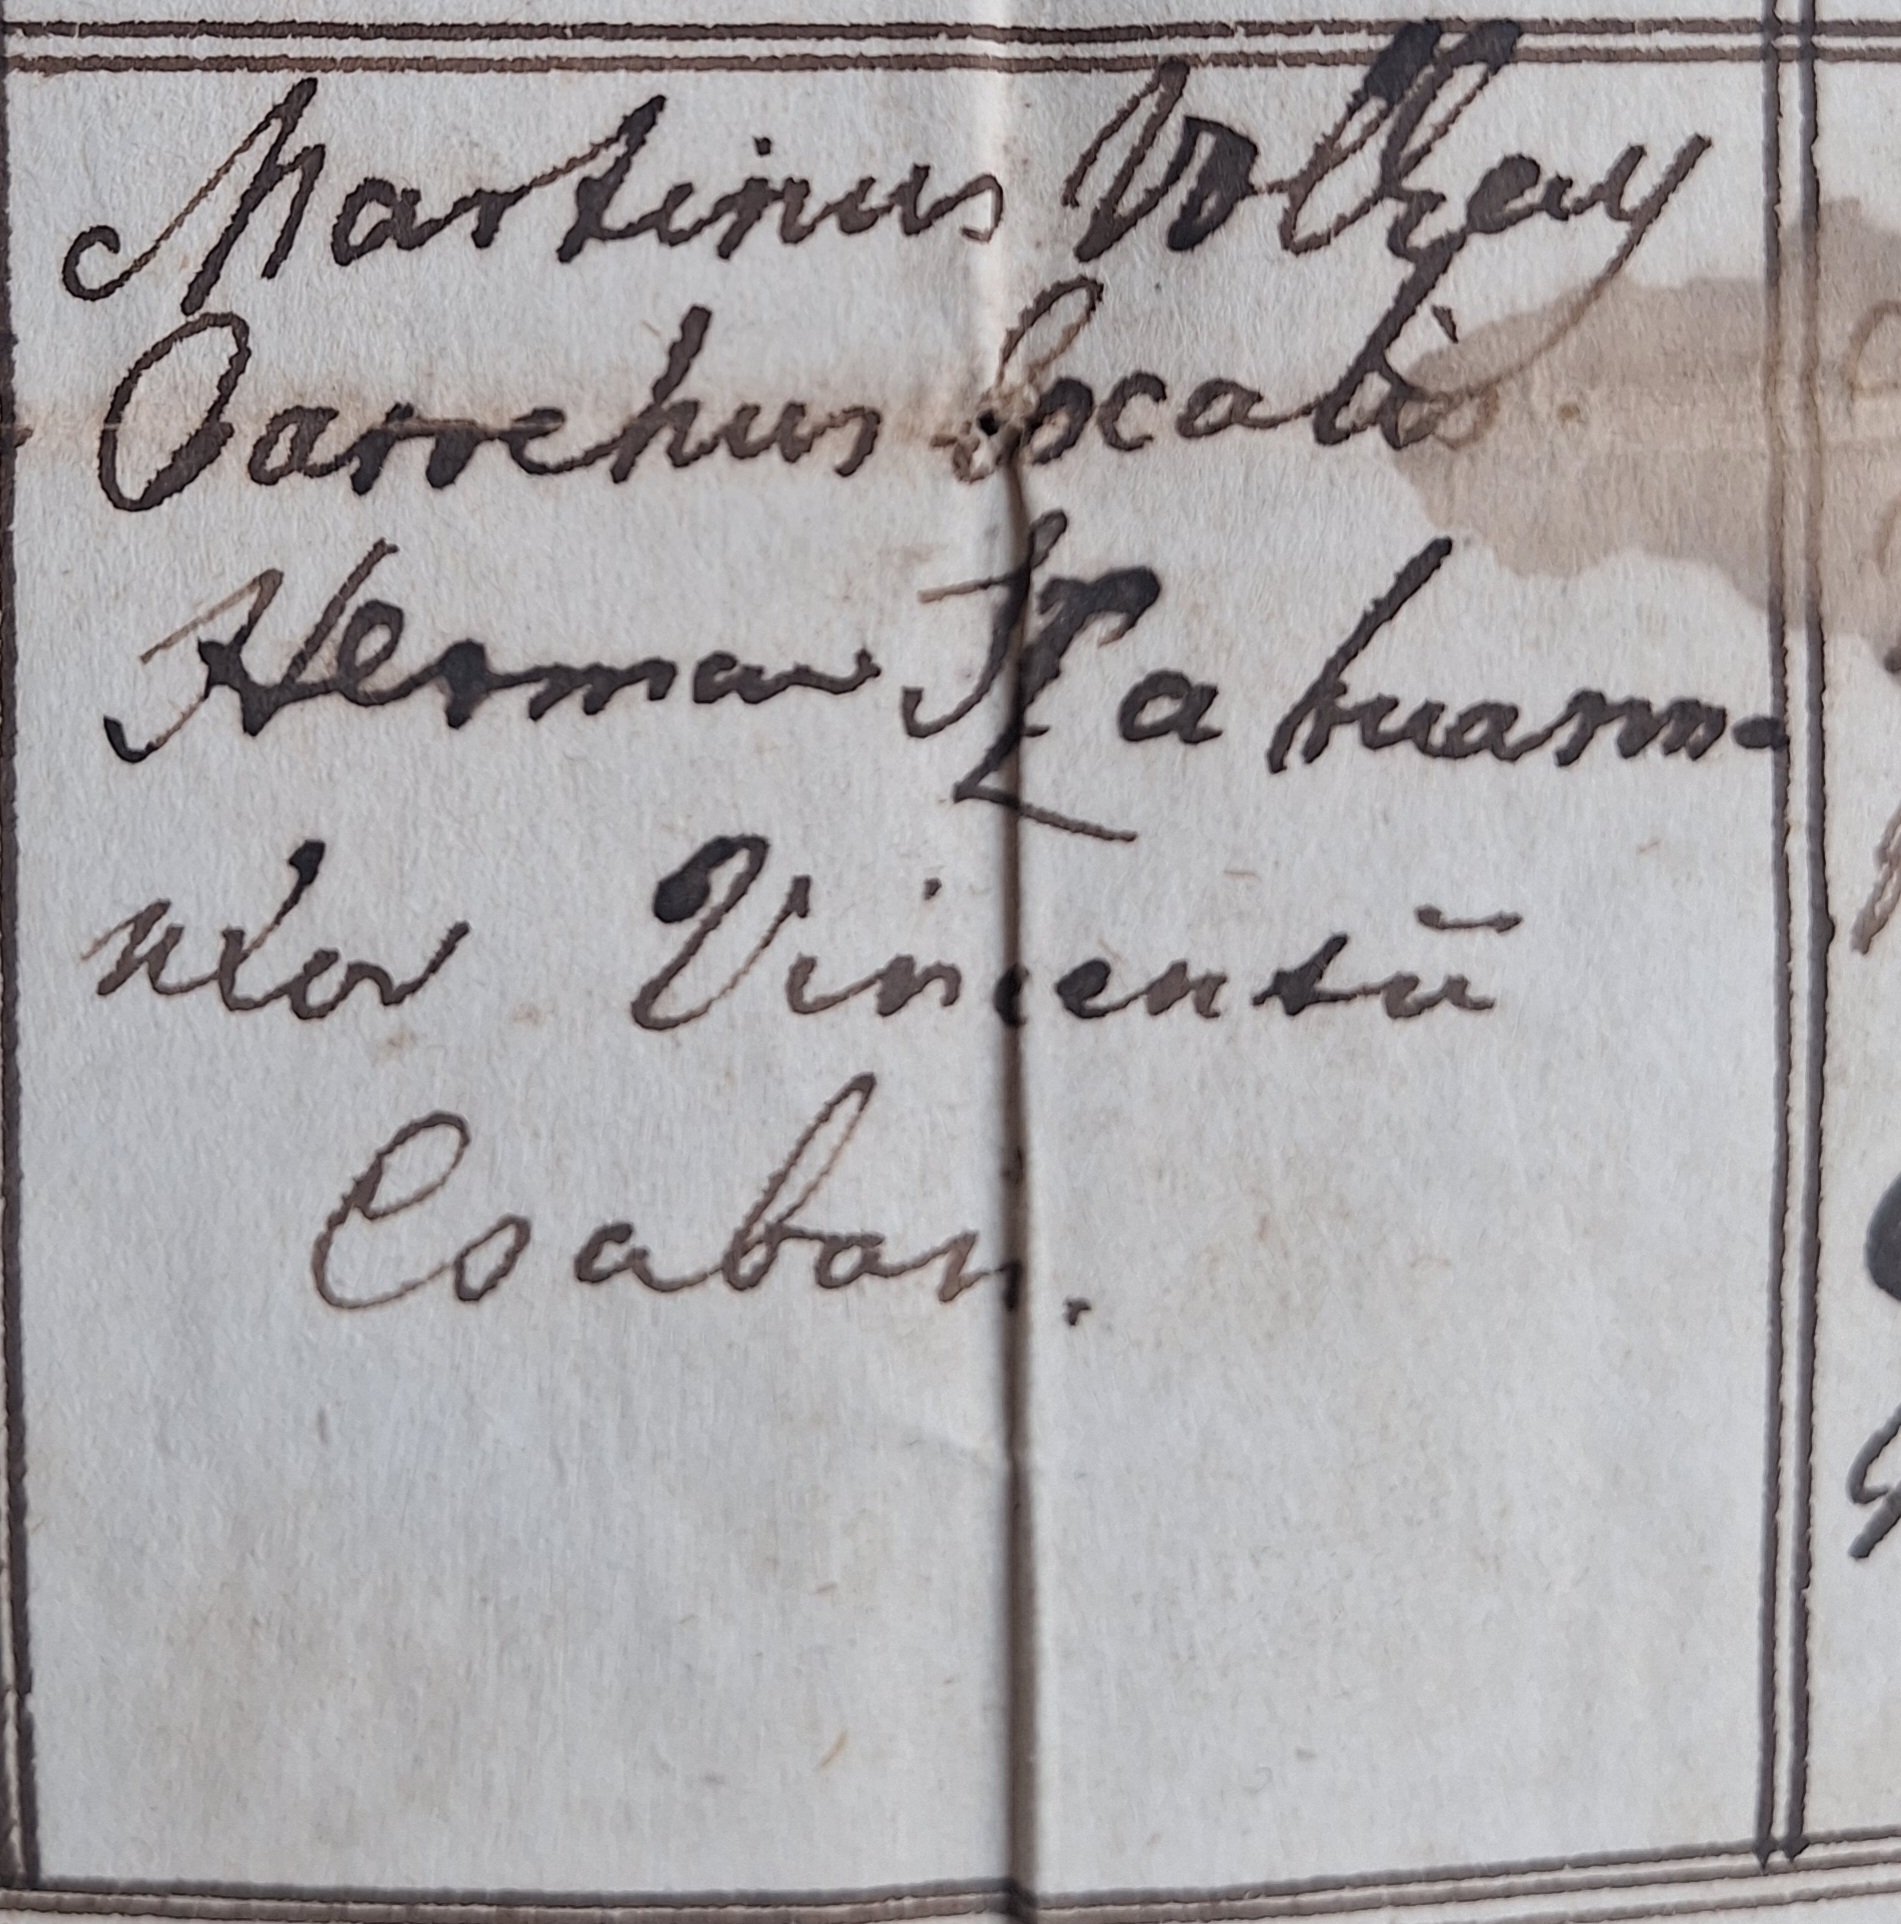 Martinus Volkay
Parochus Localis
Herman
uxor Vincentū
Csaban.